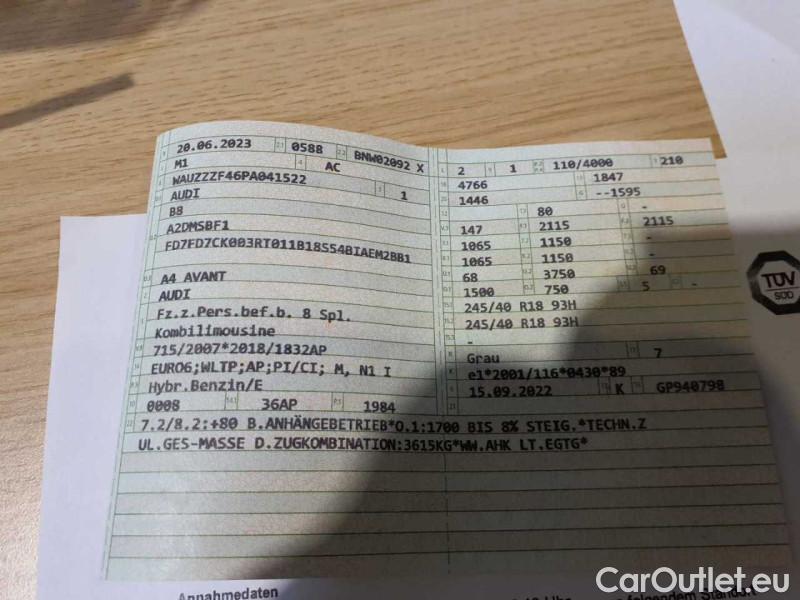 20.06.2023 0588 BNW02092 X
M1 AC
WAUZZZF46PA041522 1
AUDI
B8
A2DMSBF1
FD7FD7CK003RT011B18S54BIAEM2BB1
A4 AVANT
AUDI
Fz.z.Pers.bef.b. 8 Spl.
Kombilimousine
715/2007*2018/1832AP
EURO6;WLTP;AP;PI/CI; M, N1 I
Hybr.Benzin/E
0008 36AP 1984
2 1 110/4000 210
4766 1847
1446 --1595
80 -
147 2115 2115
1065 1150 -
1065 1150 -
68 3750 69
1500 750 5 -
245/40 R18 93H
245/40 R18 93H
-
Grau 7
e1*2001/116*0430*89
15.09.2022 K GP940798
7.2/8.2:+80 B.ANHÄNGEBETRIEB*O.1:1700 BIS 8% STEIG.*TECHN.Z
UL.GES-MASSE D.ZUGKOMBINATION:3615KG*WW.AHK LT.EGTG*
TÜV
SÜD
Annahmedaten
folgendem Standort
CarOutlet.eu